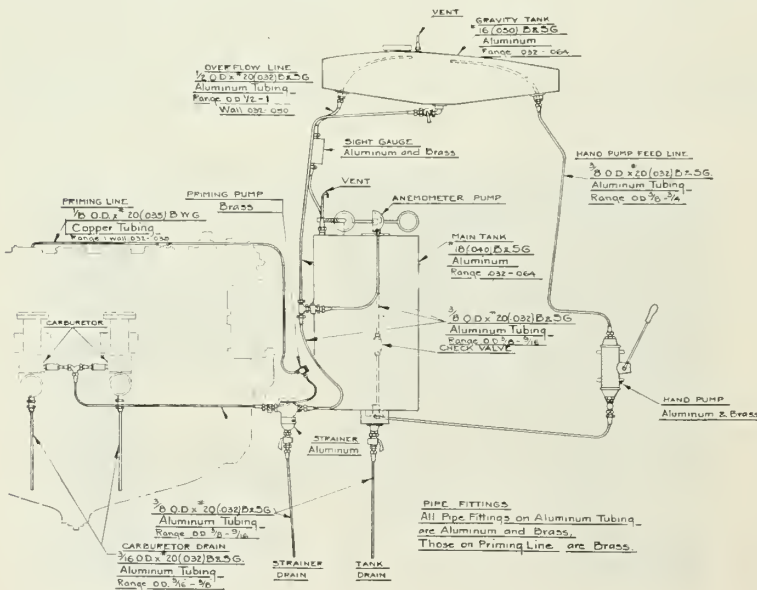 VENT
GRAVITY TANK
#16 (050) B&SG
Aluminum
Range 032-064
OVERFLOW LINE
1/2 O.D x #20 (032) B&SG
Aluminum Tubing
Range OD 1/2-1
Wall 032-050
SIGHT GAUGE
Aluminum and Brass
HAND PUMP FEED LINE
3/8 O.D x #20 (032) B&SG.
Aluminum Tubing
Range OD 3/8-3/4
VENT
PRIMING LINE
1/8 O.D. x #20 (035) B W G
Copper Tubing
Range Wall 032-
PRIMING PUMP
Brass
ANEMOMETER PUMP
MAIN TANK
#18 (040) B&SG
Aluminum
Range .032-064
CARBURETOR
3/8 O.D x #20 (.032) B&SG
Aluminum Tubing
Range OD 3/8-9/16
CHECK VALVE
HAND PUMP
Aluminum & Brass
STRAINER
Aluminum
3/8 O.D x #20 (032) B&SG
Aluminum Tubing
Range OD 3/8-9/16
CARBURETOR DRAIN
3/16 OD x #20 (032) B&SG.
Aluminum Tubing
Range OD. 3/16-3/8
STRAINER
DRAIN
TANK
DRAIN
PIPE FITTINGS
All Pipe Fittings on Aluminum Tubing
are Aluminum and Brass,
Those on Priming Line are Brass.